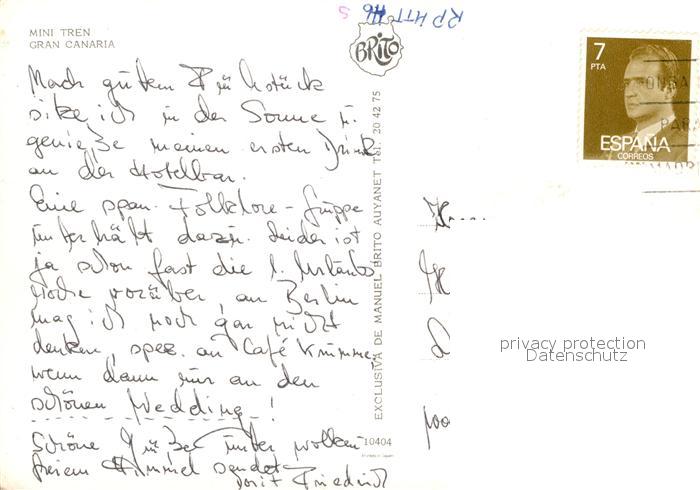 MINI TREN
GRAN CANARIA
BRITO
7
PTA
ESPAÑA
CORREOS
Nach gutem Frühstück
sitze ich in der Sonne u.
genieße meinen ersten Drink
an der Hotelbar.
Eine span. Folklore-Gruppe
unterhält dazu. Leider ist
ja schon fast die 1. Urlaubs
woche vorüber, an Berlin
mag ich noch gar nicht
denken, spez. an Café Krümme,
wenn dann nur an den
schönen Wedding!
Schöne Grüße unter wolken
freiem Himmel sendet
Dorit Friedrich
EXCLUSIVA DE MANUEL BRITO AUYANET Tel. 20 42 75
10404
privacy protection
Datenschutz